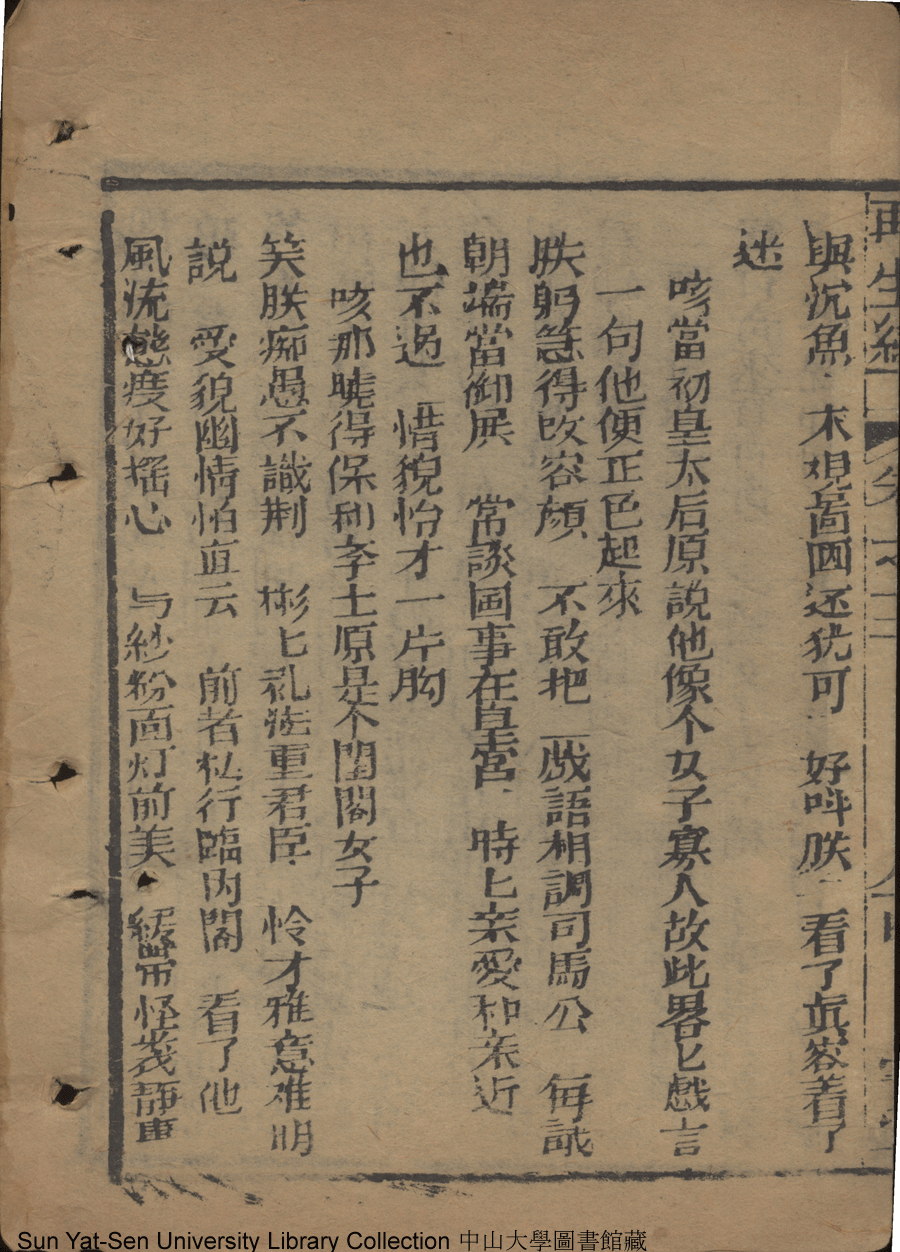 再生緣
與沉魚 未覩畫圖还犹可 好呌朕 看了真容着了
迷
咳當初皇太后原說他像个女子寡人故此畧匕戲言
一句他便正色起來
朕躬急得改容顏 不敢把 戯語相調司馬公 每誠
朝端當御展 常談國事在皇宮 時匕亲愛和亲近
也不過 惜貌怡才一片胸
咳那曉得保和李士原是个閨閣女子
笑朕痴愚不識荆 彬匕礼法重君臣 怜才雅意难明
說 爱貌幽情怕直云 前者私行臨内閣 看了他
風流態度好摇心 与紗粉面灯前美 緩帶 靜
Sun Yat-Sen University Library Collection 中山大學圖書館藏